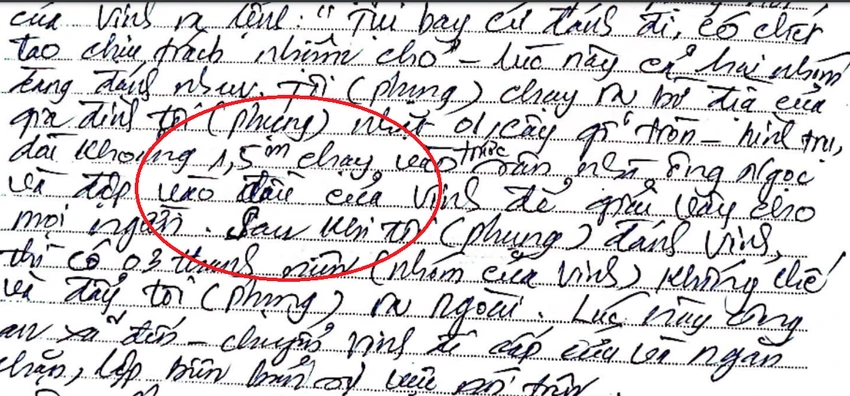 của Vinh ra lệnh: "Tụi bay cứ đánh đi, có chết
tao chịu trách nhiệm cho" - lúc này cả hai nhóm
đang đánh nhau. Tôi (Phụng) chạy ra bờ đìa của
gia đình tôi (Phụng) nhặt 01 cây gỗ tròn - hình trụ,
dài khoảng 1,5m chạy vào trước sân nhà ông Ngọc
và đập vào đầu của Vinh để giải vây cho
mọi người. Sau khi tôi (Phụng) đánh Vinh,
thì có 03 thanh niên (nhóm của Vinh) khống chế
và đẩy tôi (Phụng) ra ngoài. Lúc này công
an xã đến - chuyển Vinh đi cấp cứu và ngăn
chặn, lập biên bản sự việc nói trên.